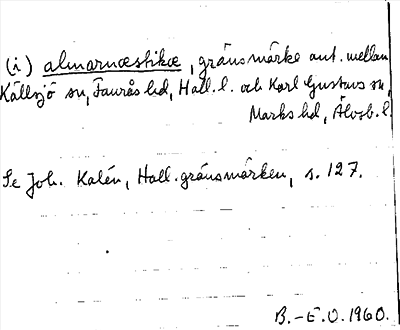 (i) almarnæstikæ, gränsmärke ant. mellan
Källsjö sn, Faurås hd, Hall. l. och Karl Gustavs sn,
Marks hd, Älvsb. l.
Se Joh. Kalén, Hall. gränsmärken, s. 127.
B.-E.O. 1960.